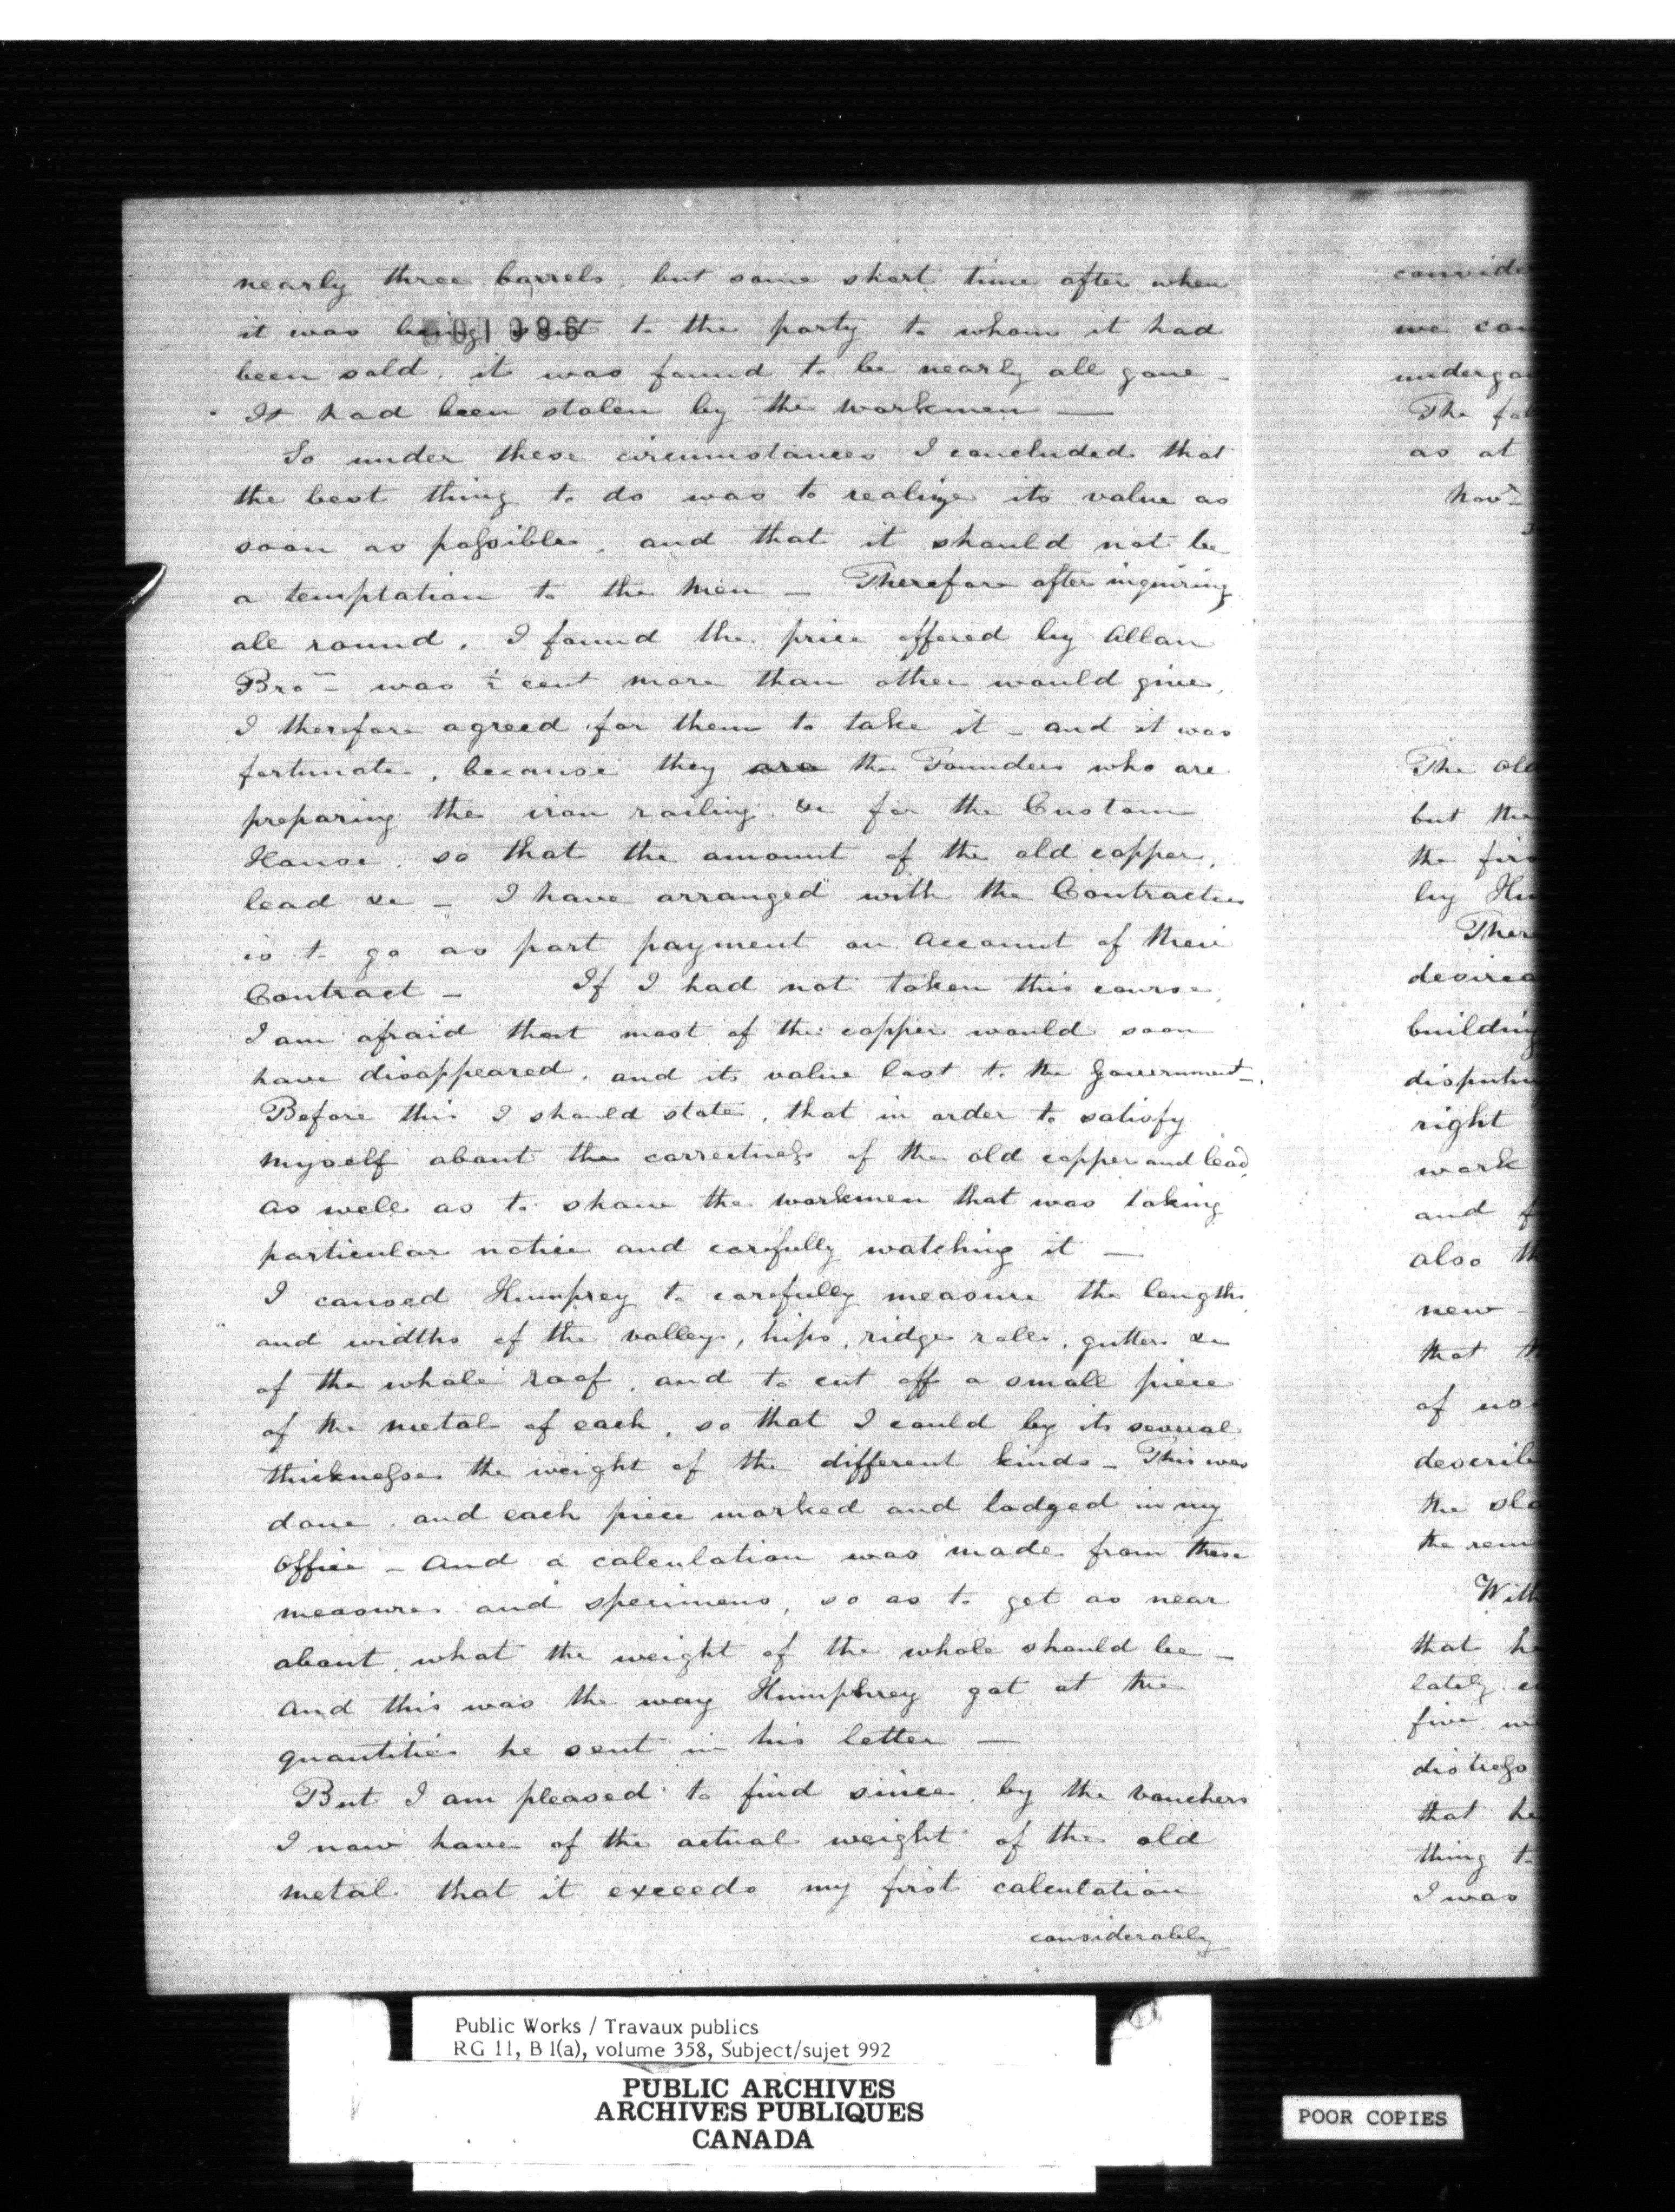 nearly three barrels, but some short time after when
it was being sent to the party to whom it had
001086
been sold, it was found to be nearly all gone –
It had been stolen by the workmen —
So under these circumstances I concluded that
the best thing to do was to realize its value as
soon as possible, and that it should not be
a temptation to the men – Therefore after inquiring
all round, I found the price offered by Allan
Bros – was ½ cent more than other would give,
I therefore agreed for them to take it – and it was
fortunate, because they are the Founders who are
preparing the iron railing &c for the Custom
House, so that the amount of the old copper,
lead &c – I have arranged with the Contractors
is to go as part payment on account of their
Contract – If I had not taken this course,
I am afraid that most of the copper would soon
have disappeared, and its value lost to the Government –
Before this I should state, that in order to satisfy
myself about the correctness of the old copper and lead,
as well as to show the workmen that was taking
particular notice and carefully watching it —
I caused Humprey to carefully measure the lengths
and widths of the valleys, hips, ridge rolls, gutters &c
of the whole roof, and to cut off a small piece
of the metal of each, so that I could by its several
thicknesses the weight of the different kinds – This was
done, and each piece marked and lodged in my
office – And a calculation was made from these
measures and specimens, so as to get as near
about, what the weight of the whole should be –
And this was the way Humphrey got at the
quantities he sent in his letter —
But I am pleased to find since, by the vouchers
I now have of the actual weight of the old
metal that it exceeds my first calculation
considerably
we
The
as at
Novr
The old
but the
the
by
building
right
work
and
also
new –
that
of
the
the
that
lately
five
distress
that he
thing to
I was
Public Works / Travaux publics
RG 11, B 1(a), volume 358, Subject/sujet 992
PUBLIC ARCHIVES
ARCHIVES PUBLIQUES
CANADA
POOR COPIES